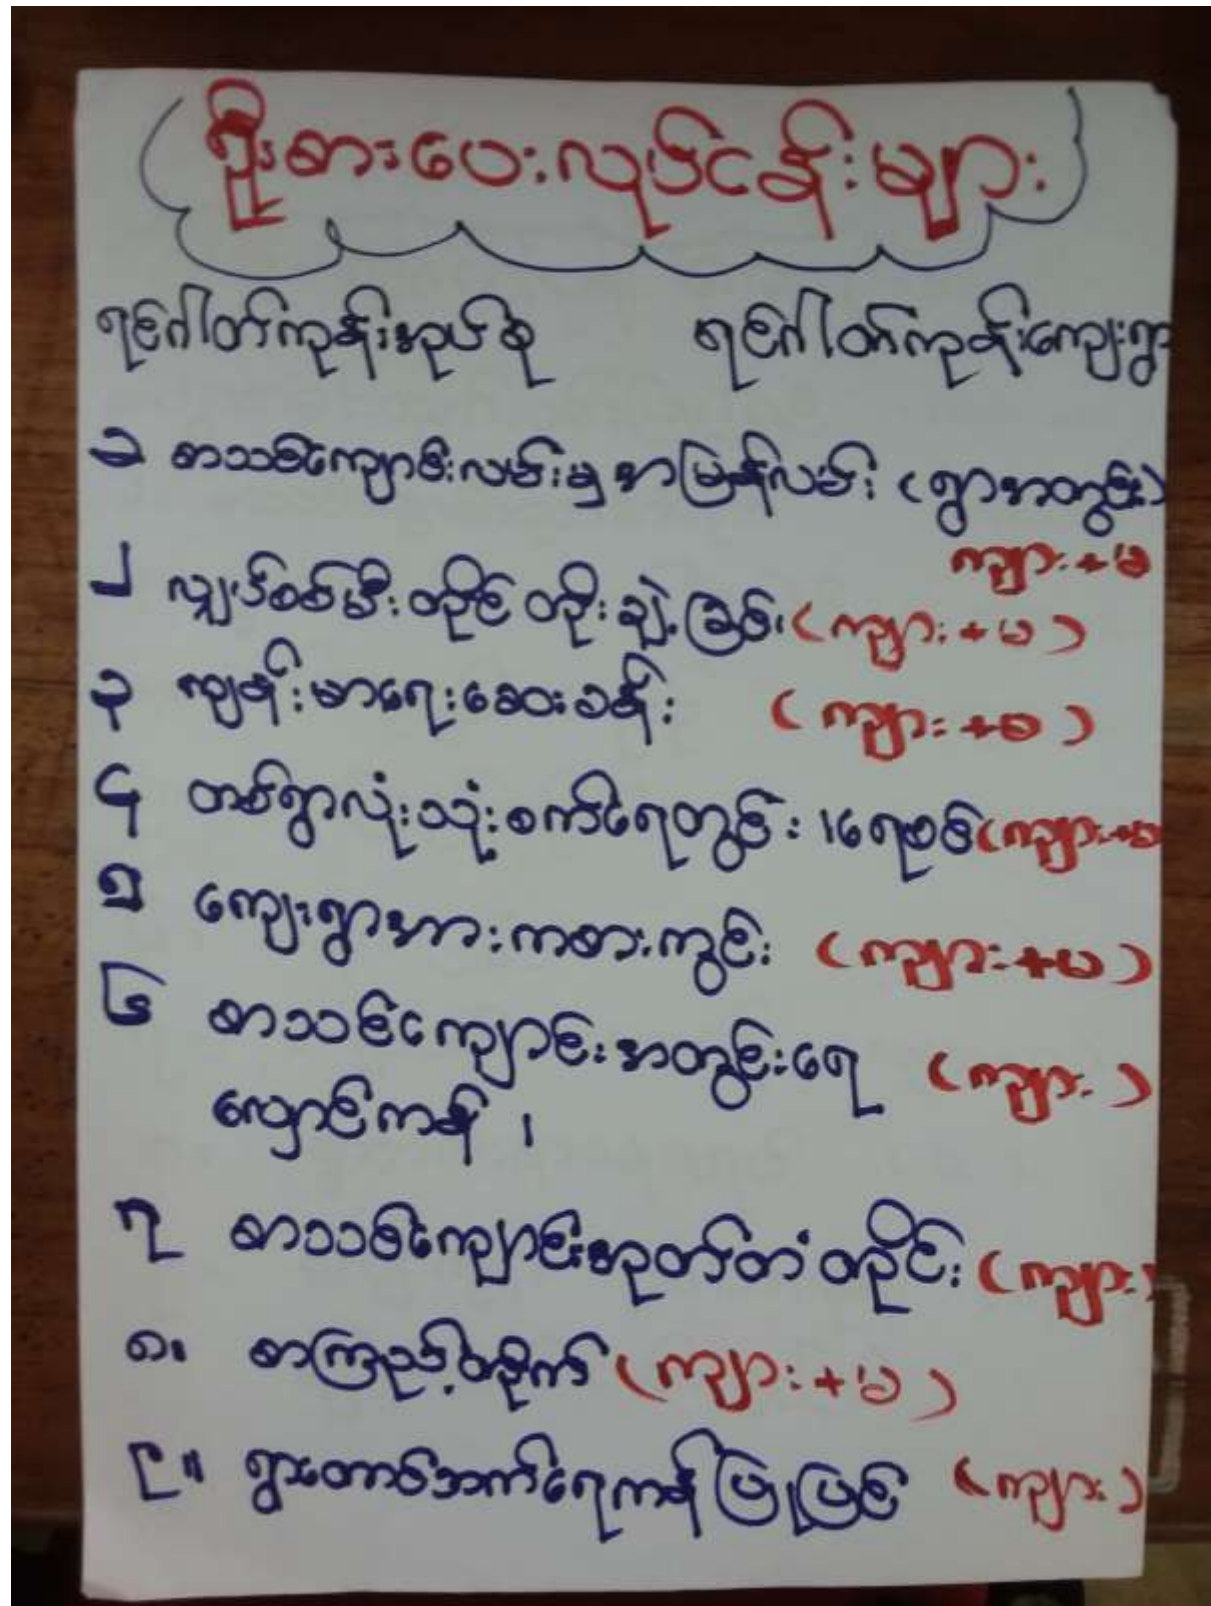 ဦးစားပေးလုပ်ငန်းများ
ရင်ဂါတ်ကုန်းအုပ်စု ရင်ဂါတ်ကုန်းကျေးရွာ
၁ စာသင်ကျောင်းလမ်းမှ အာမြန်လမ်း (ရွာအတွင်း)
ကျား+မ
၂ လျှပ်စစ်မီးတိုင် တိုးချဲ့ခြင်း (ကျား+မ)
၃ ကျန်းမာရေးဆေးခန်း (ကျား+မ)
၄ တစ်ရွာလုံးသုံးစက်ရေတွင်း ၊ရေစင် (ကျား+မ
၅ ကျေးရွာအားကစားကွင်း (ကျား+မ)
၆ စာသင်ကျောင်းအတွင်းရေ (ကျား)
လှောင်ကန် ၊
၇ စာသင်ကျောင်းအုတ်တံတိုင်း (ကျား)
၈။ စာကြည့်တိုက် (ကျား+မ)
၉။ ရွာတောင်ဘက်ရေကန်ပြုပြင် (ကျား)